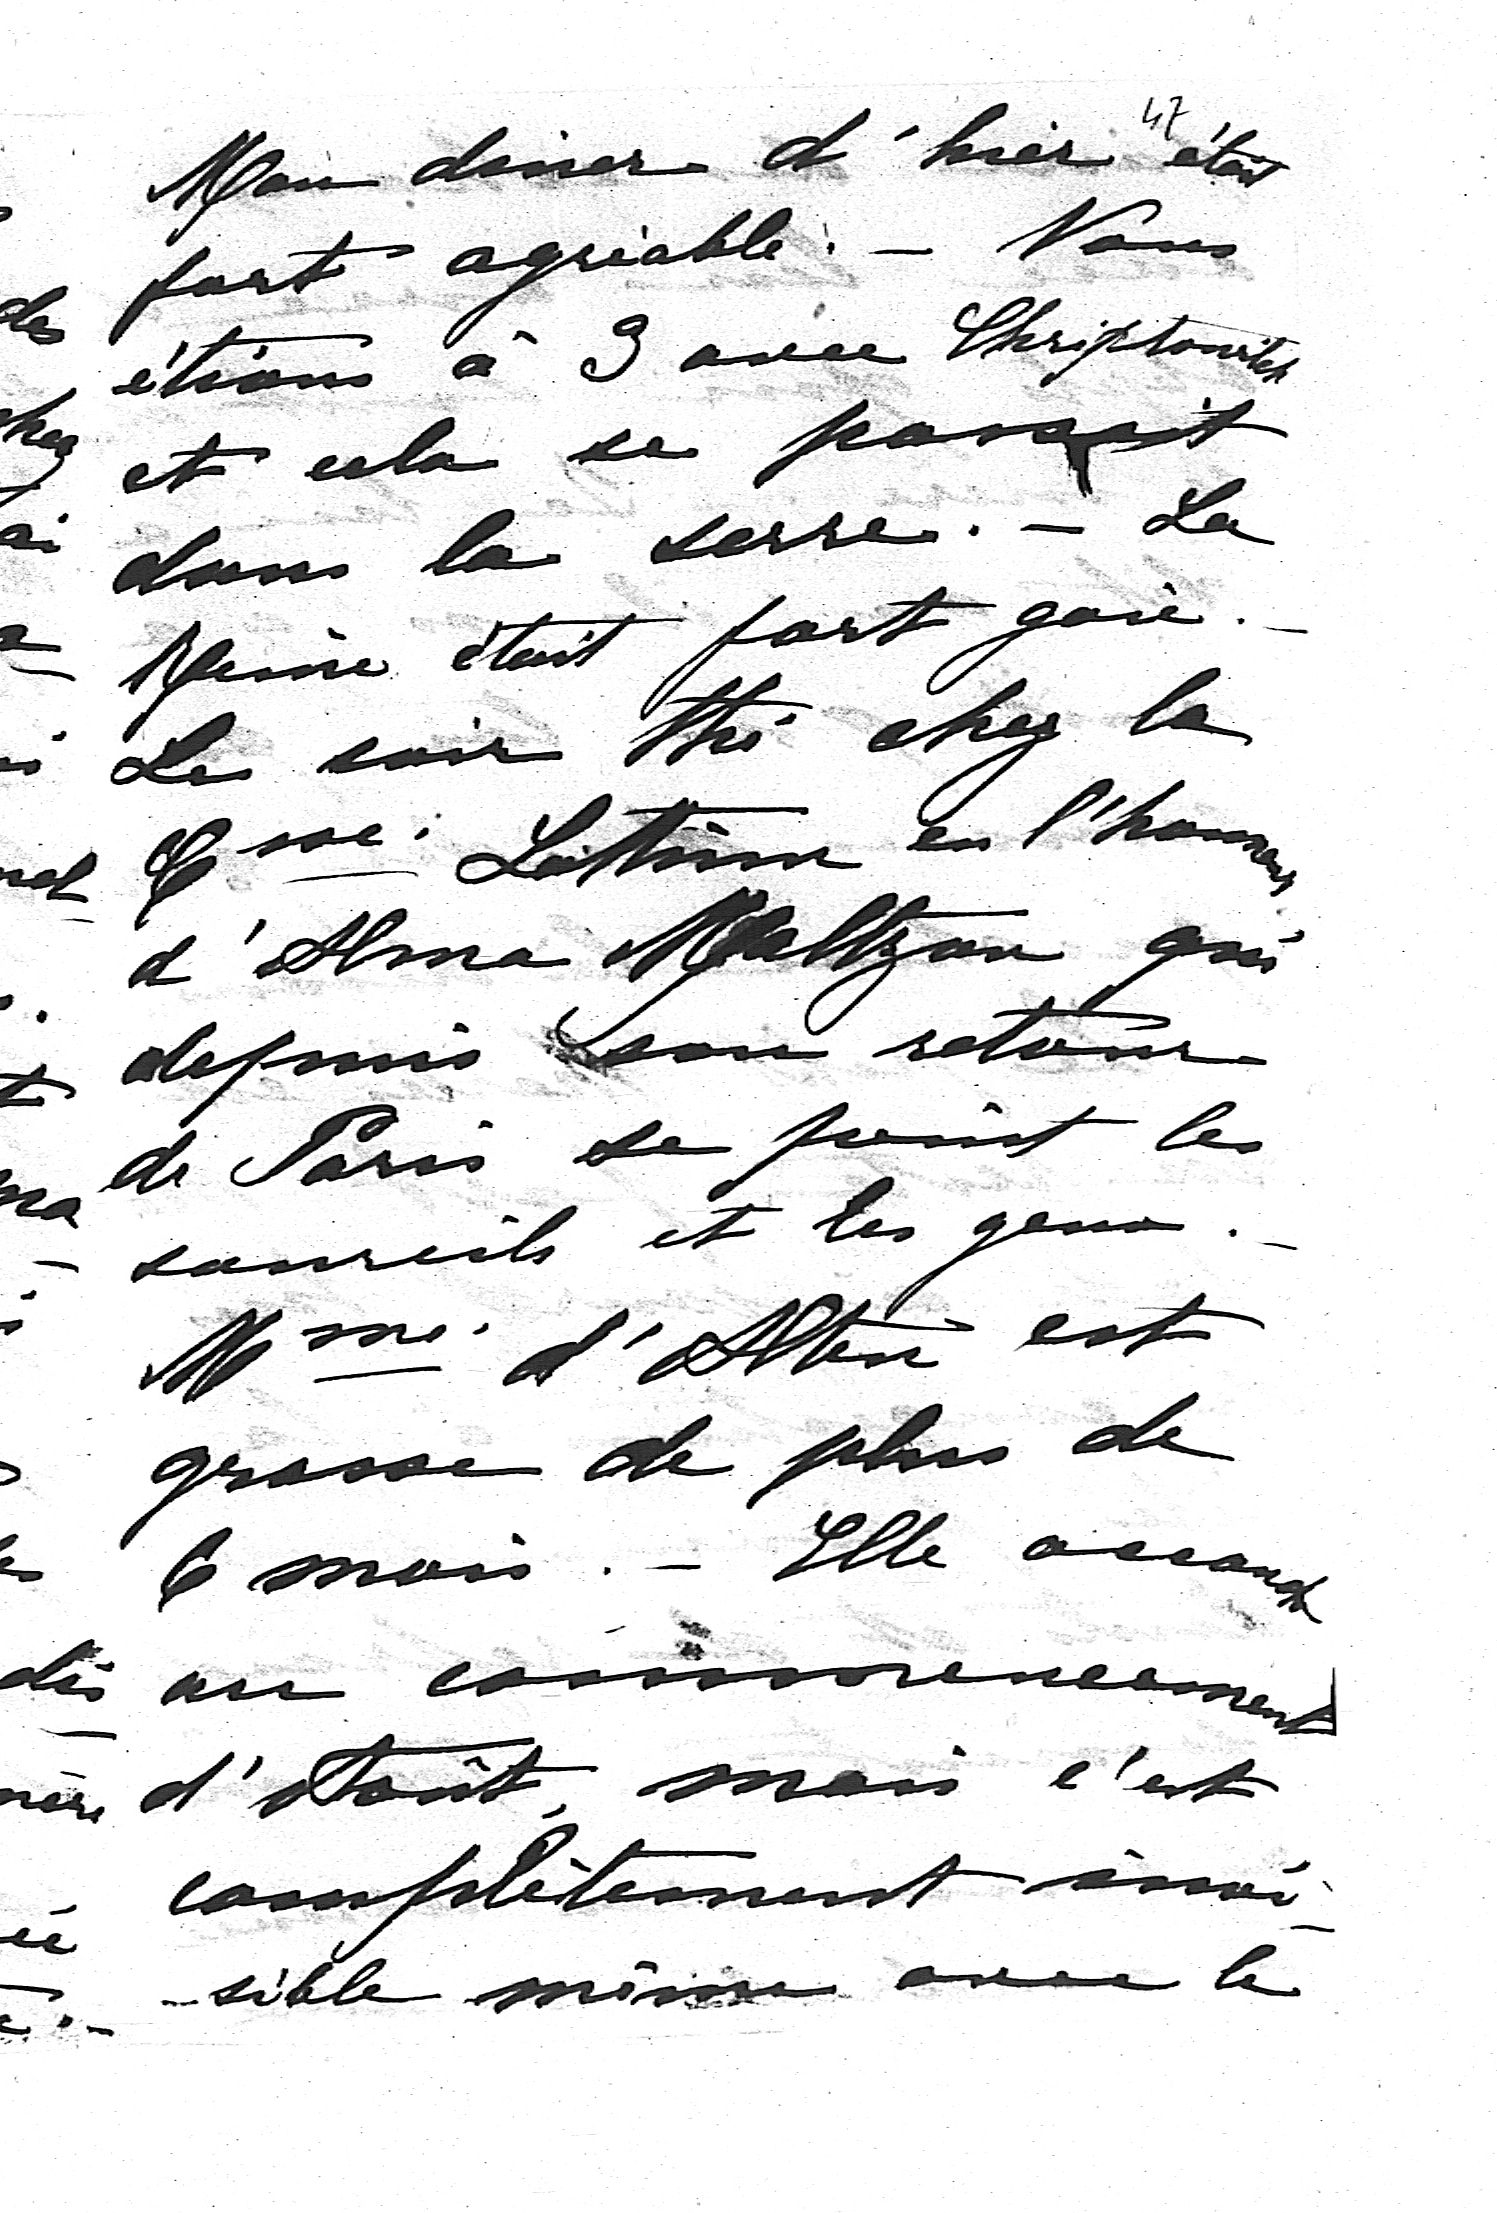 47
Mon diner d'hier était
fort agréable. – Nous
étions à 9 avec
et cela se passait
dans la serre. – La
Reine était fort gaie. –
Le soir thé chez la
en l'honneur
d'Alma Maltzan qui
depuis son retour
de Paris se peint les
soureils et les yeux. –
Mme. d'Alten est
grosse de plus de
6 mois. – Elle accouche
au commencement
d'Août, mais c'est
complètement invi-
-sible même avec le